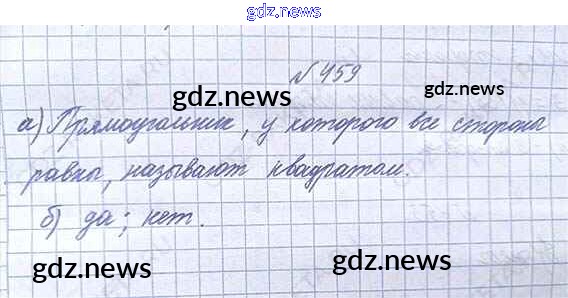 gdz.news
№ 459
gdz.news
gdz.news
а) Прямоугольник, у которого все стороны
равны, называют квадратом.
б) да; нет.
gdz.news
gdz.news